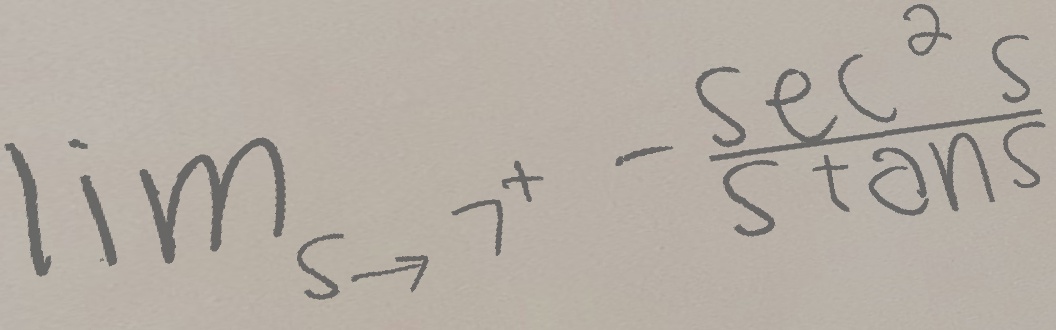 \lim_{s \to 7^+} -\frac{\sec^2 s}{s \tan s}